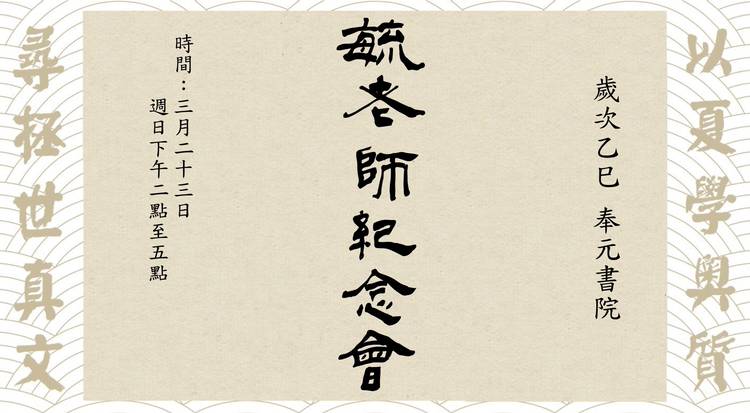 以夏學奧質
歲次乙巳 奉元書院
毓老師紀念會
時間：三月二十三日
週日下午二點至五點
尋拯世真文